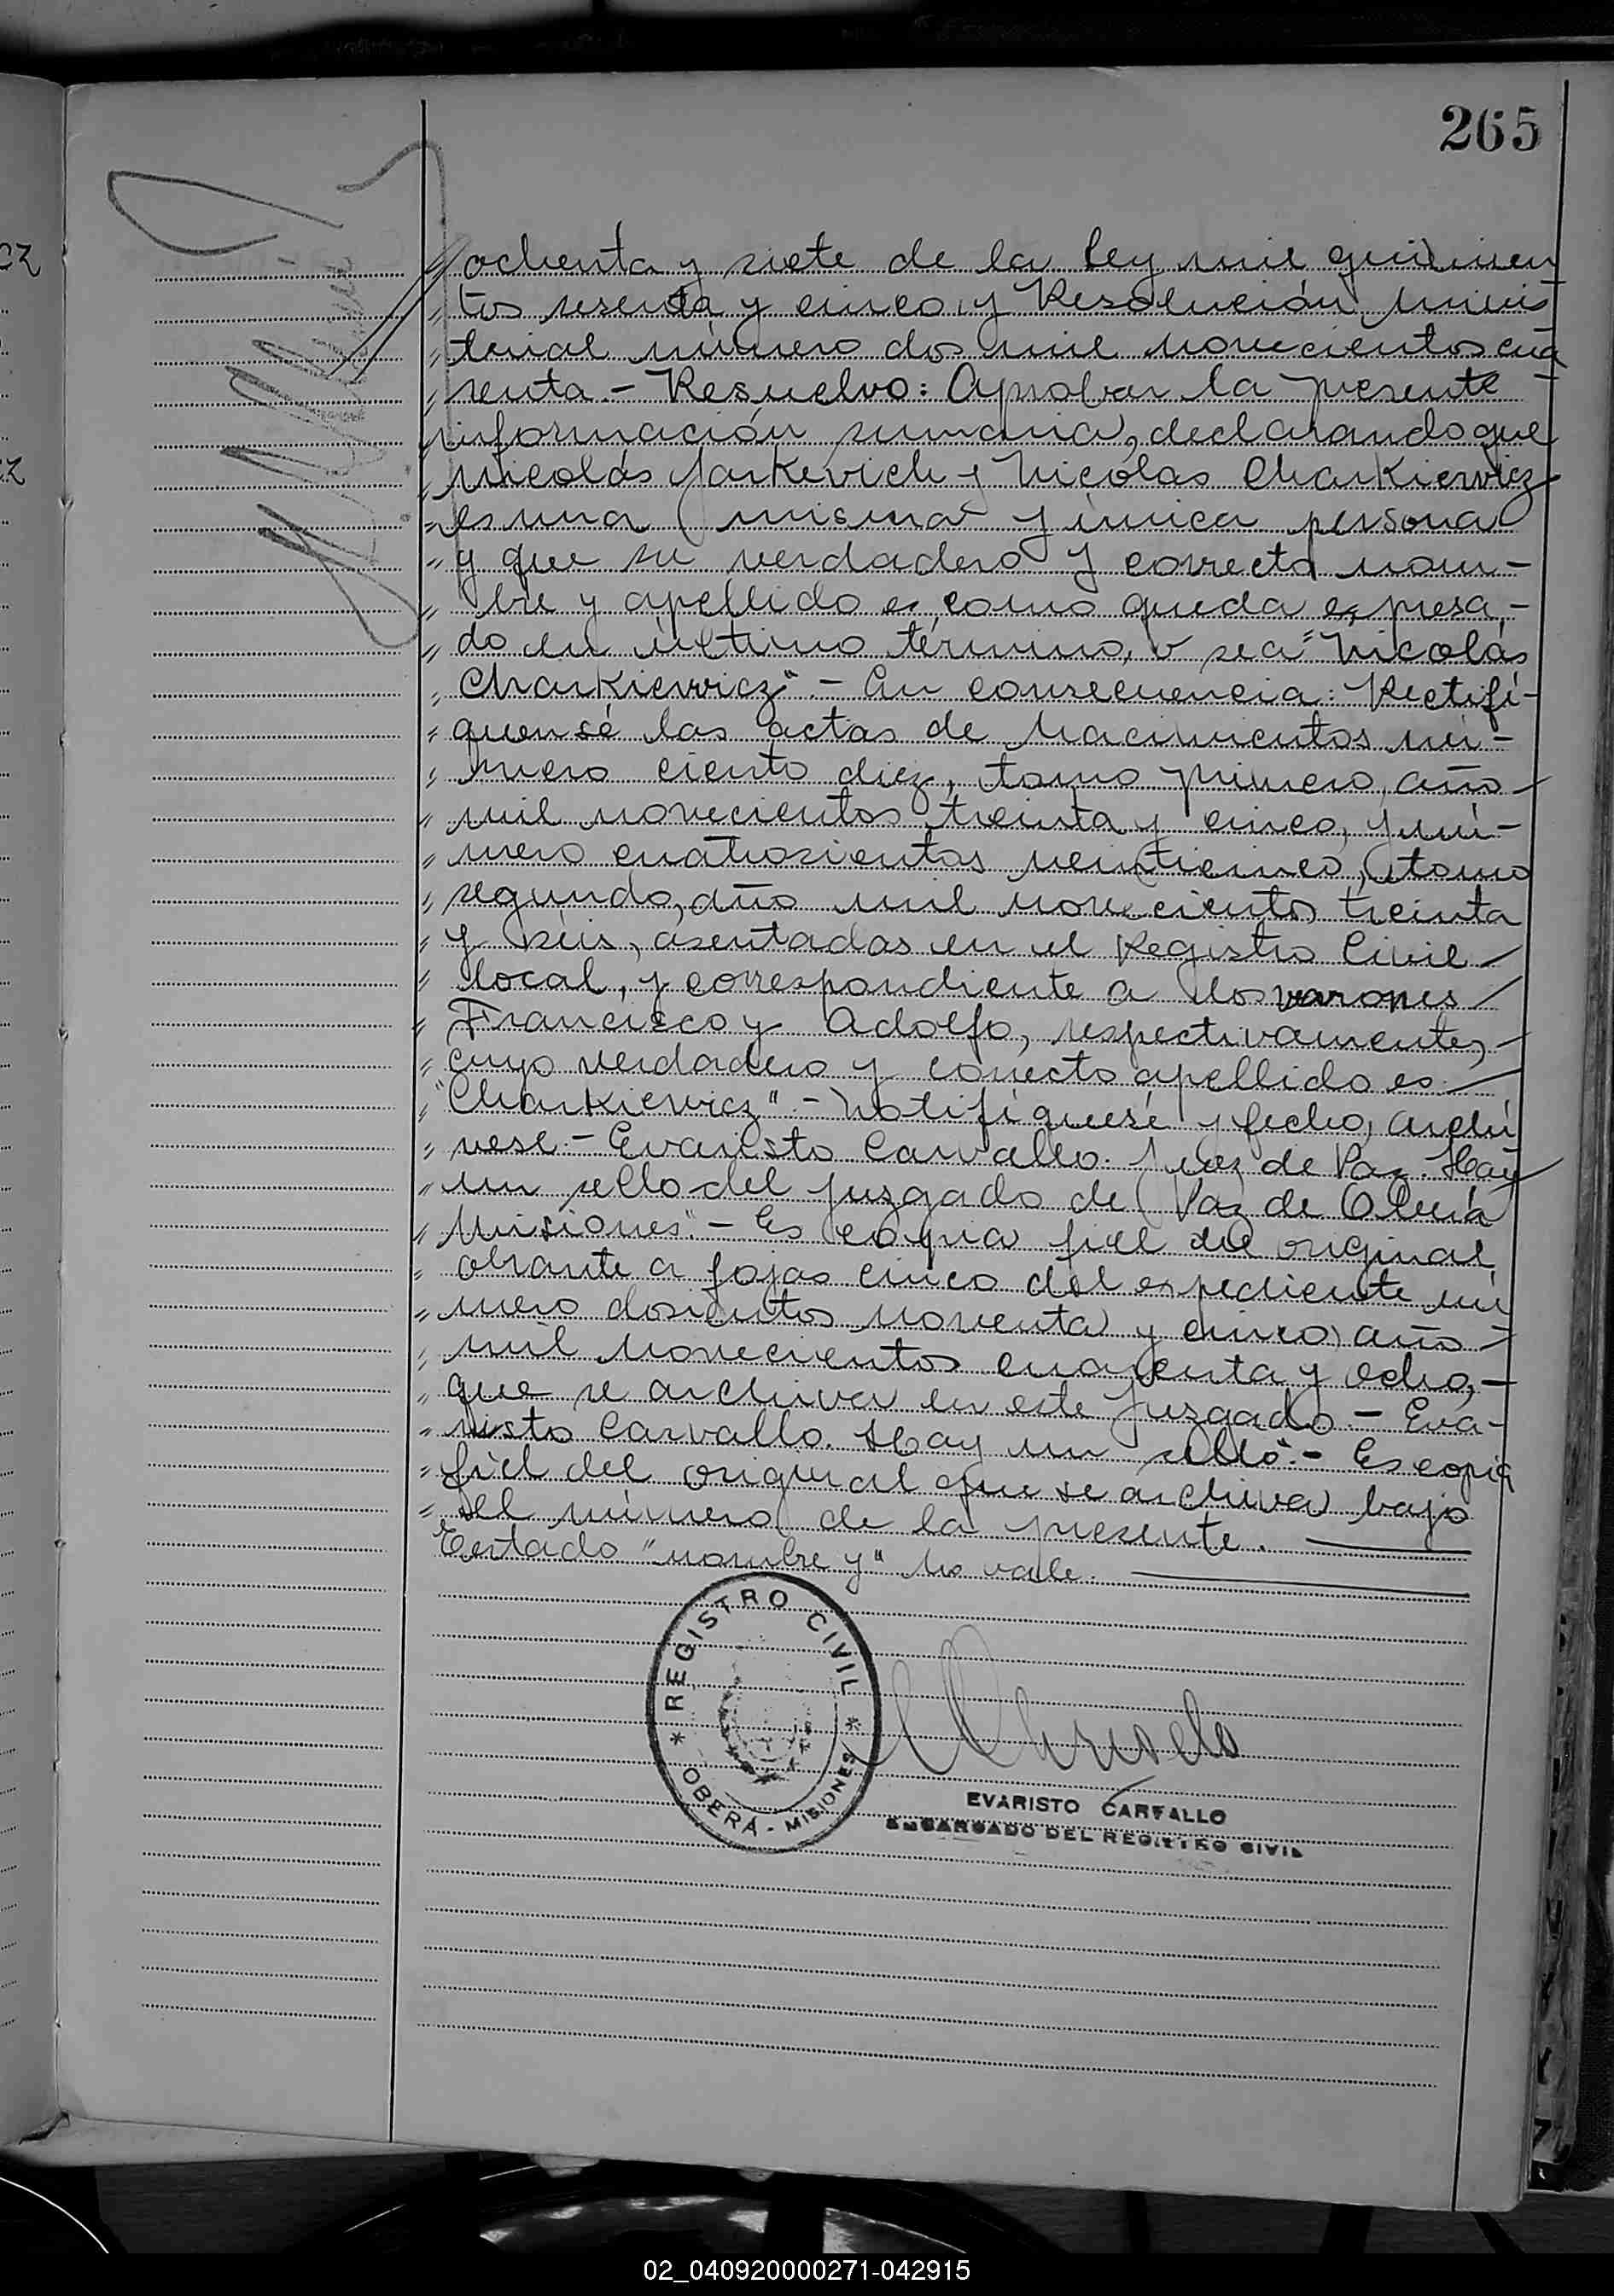 265
ochenta y siete de la Ley mil quinien
tos sesenta y cinco, y Resolución Minis
terial número dos mil novecientos cua
renta.- Resuelvo: Aprobar la presente -
información sumaria, declarando que
Nicolás Jarkevich y Nicolás Charkiewicz
es una misma y única persona
y que su verdadero y correcto nom-
bre y apellido es como queda expresa-
do en último término, o sea "Nicolás
Charkiewicz".- En consecuencia: Rectifí-
quensé las actas de nacimientos nú-
mero ciento diez, tomo primero, año
mil novecientos treinta y cinco, y nú-
mero cuatrosientos veinticinco, tomo
segundo, año mil novecientos treinta
y seis, asentadas en el Registro Civil
local, y correspondiente a los varones
Francisco y Adolfo, respectivamente,
cuyo verdadero y correcto apellido es
"Charkiewicz".- Notifíquesé y fecho, archí
vese.- Evaristo Carvallo. Juez de Paz. Hay
un sello del Juzgado de Paz de Oberá
Misiones".- Es copia fiel del original,
obrante a fojas cinco del expediente nú
mero doscientos noventa y cinco, año -
mil novecientos cuarenta y ocho, -
que se archiva en este Juzgado.- Eva-
risto Carvallo. Hay un sello".- Es copia
fiel del original que se archiva bajo
el número de la presente.
Testado "nombre y" No vale.
REGISTRO CIVIL
* OBERÁ - MISIONES *
EVARISTO CARVALLO
ENCARGADO DEL REGISTRO CIVIL
02_040920000271-042915